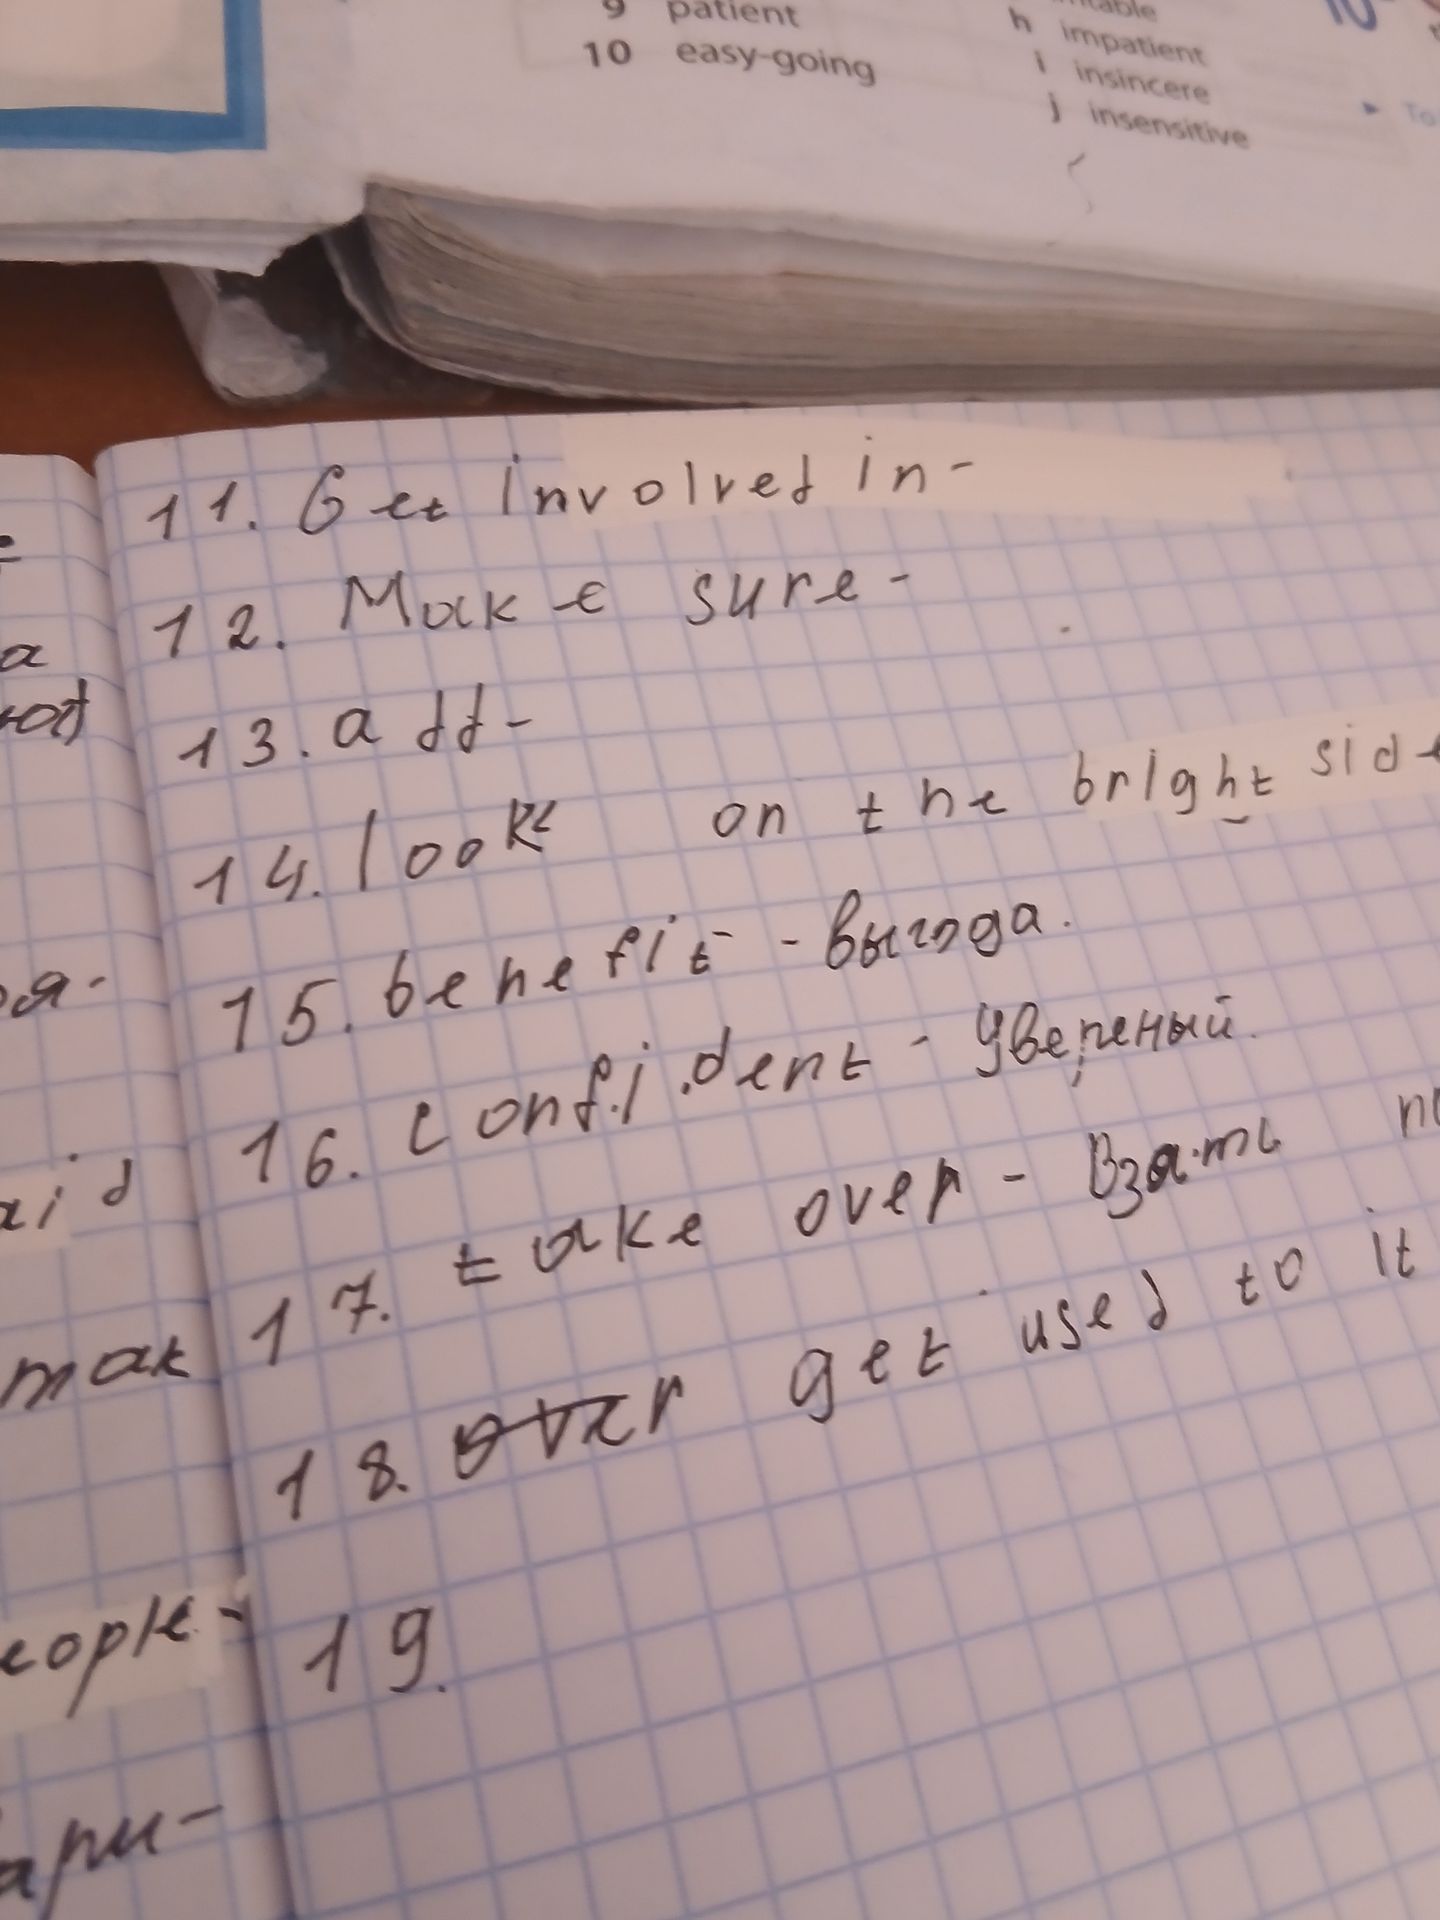 9 patient
10 easy-going
h impatient
i insincere
j insensitive
10
To
11. Get involved in-
12. Make sure-
13. add-
14. look on the bright side
15. benefit - выгода.
16. confident - Увереный.
17. take over - Взять
18. over get used to it
19.
mak
eople-